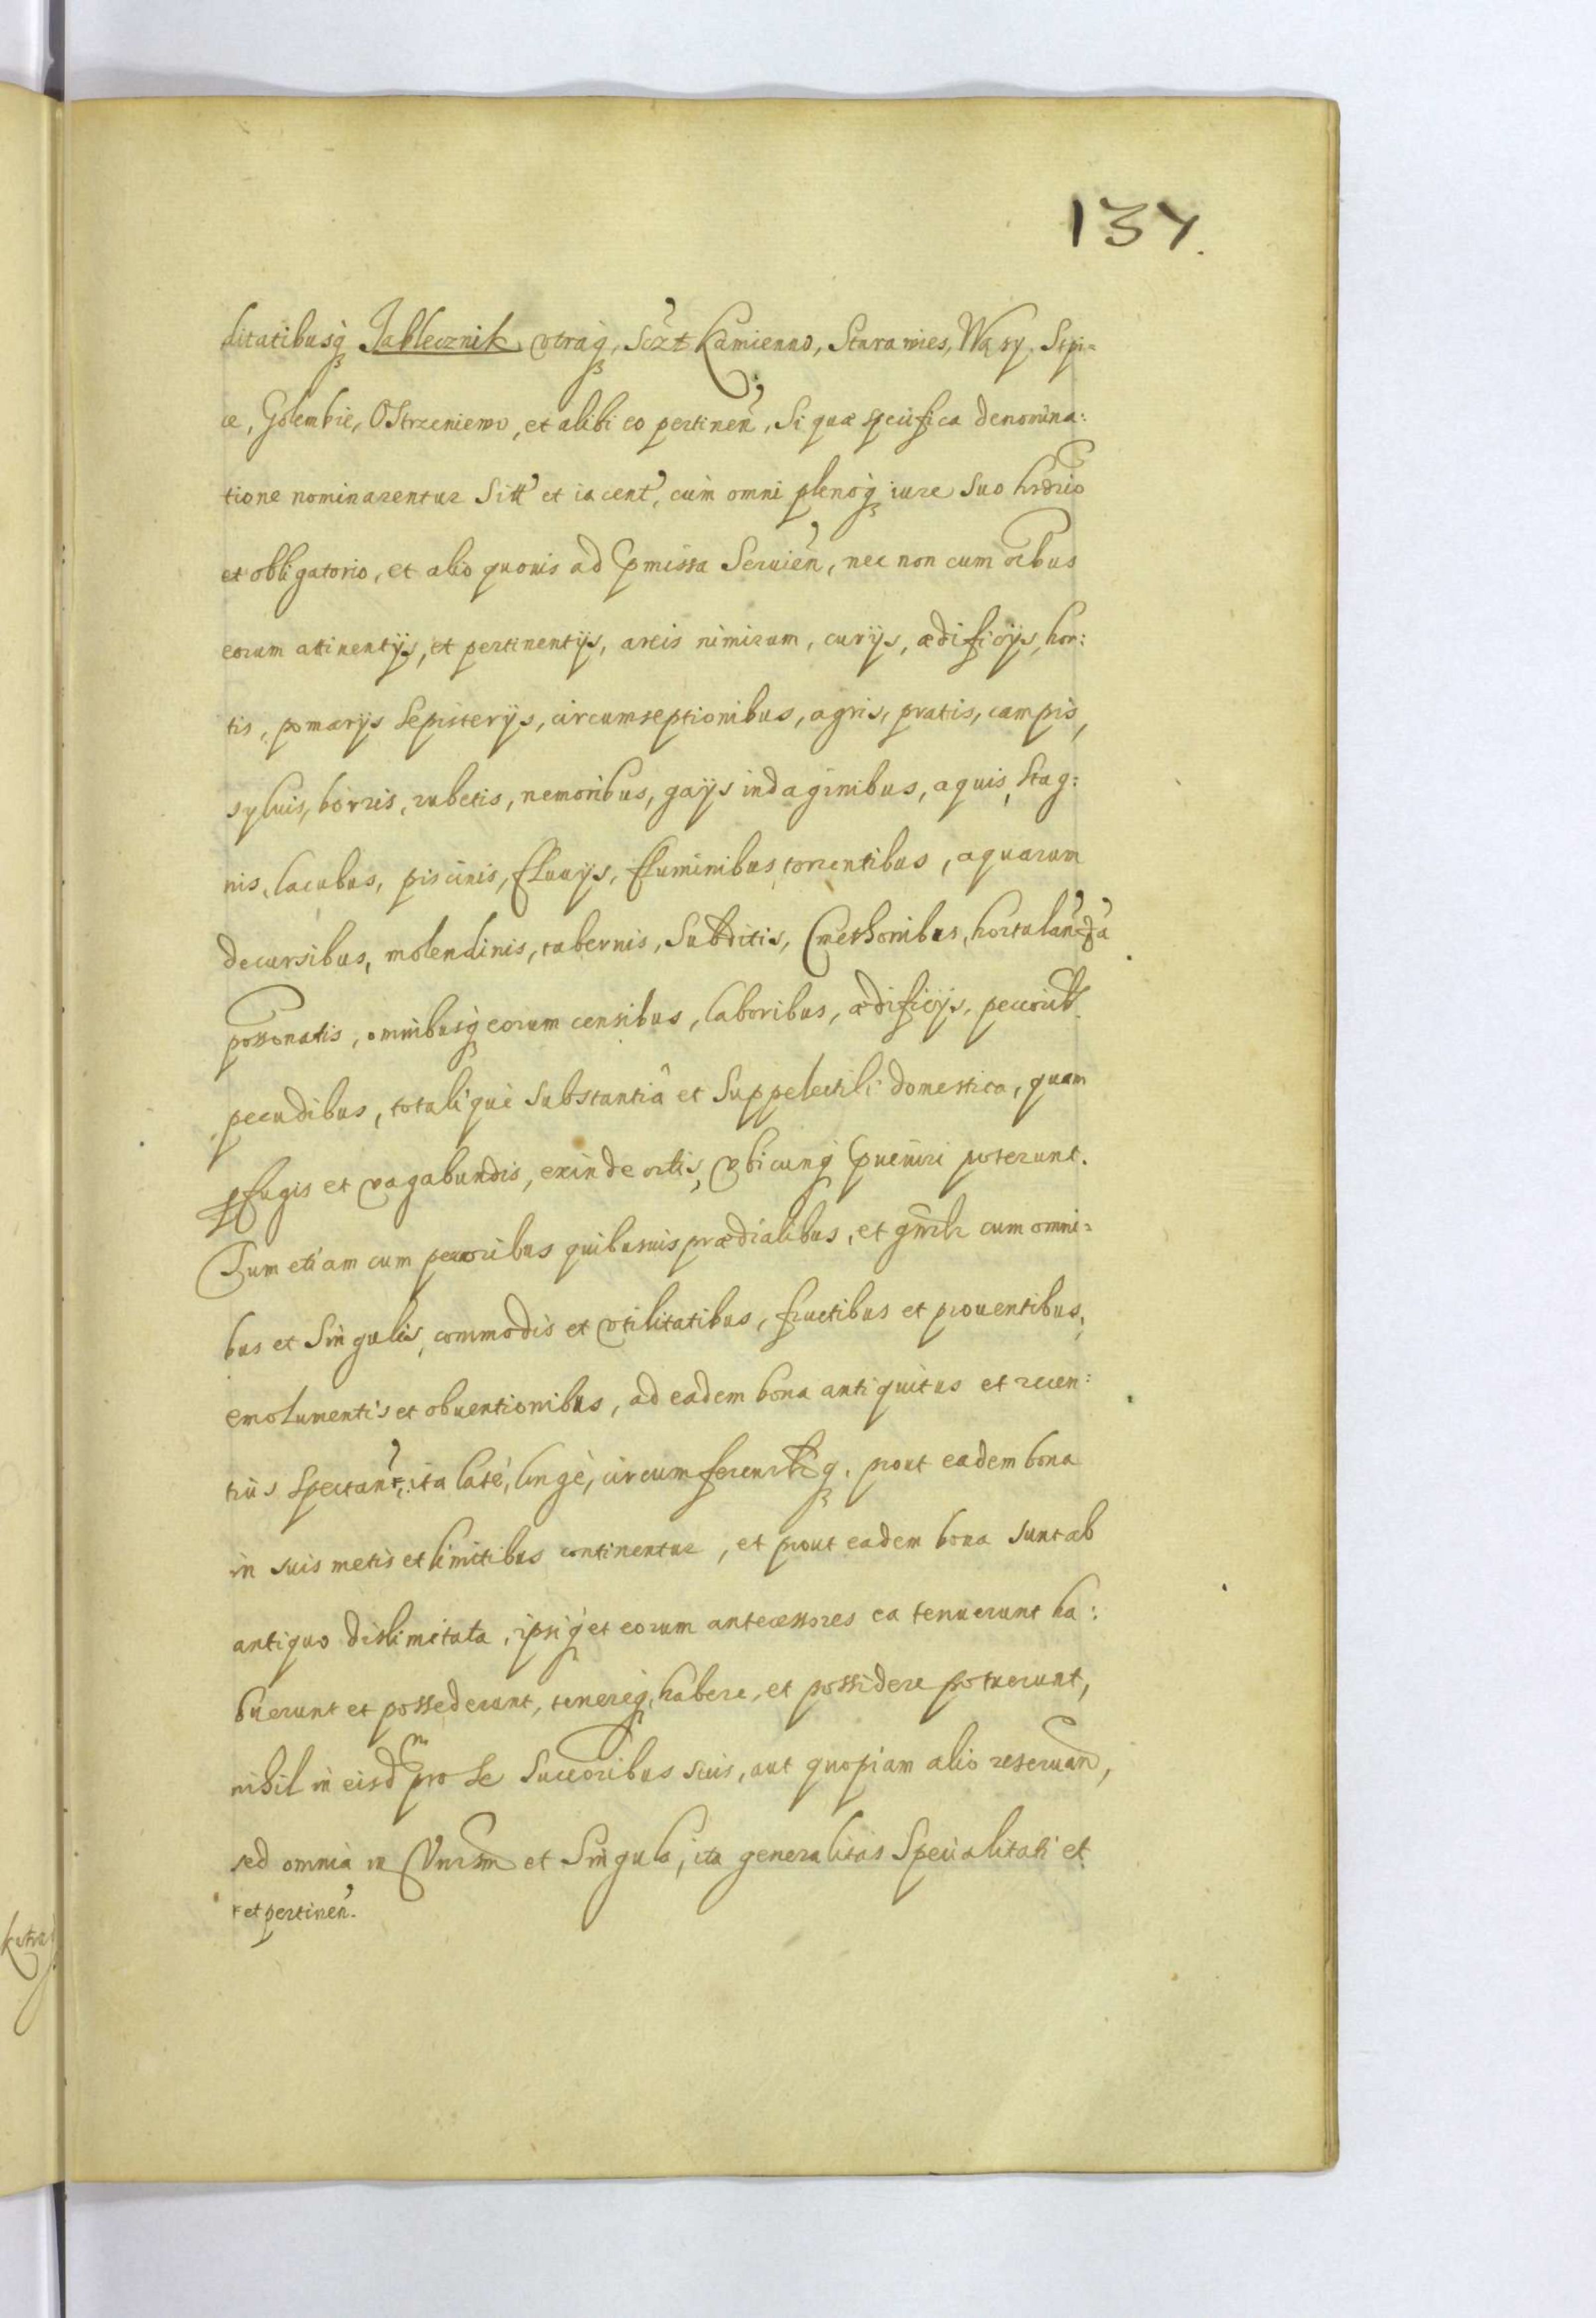 137.
ditatibusq́ Jablecznik vtraq́, Sczt Kamienno, Stara wies, Wąsy, Stpi=
ce, Golembie, Ostrzeniewo, et alibi eo pertineñ, Si quæ specifica denomina:
tione nominarentur Sitt et iacent, cum omni plenoq́ iure suo hrdrio
et obligatorio, et alio quouis ad pmissa Seruieñ, nec non cum oībus
eorum attinentijs, et pertinentijs, arcis nimirum, curijs, ædificijs, hor:
tis, pomarijs Sepisterijs, circumseptionibus, agris, pratis, campis,
syluis, borris, rubetis, nemoribus, gays indaginibus, aquis, stag:
nis, lacubus, piscinis, fluuijs, fluminibus, torrentibus, aquarum
decursibus, molendinis, tabernis, Subditis, Cmethonibus, hortulan
possonatis, omnibusq́ eorum censibus, laboribus, ædificijs, pecorib
pecudibus, totalique substantiâ et Suppelectili domestica, quam
pfugis et vagabundis, exinde ortis, vbicunq́ pueniri poterunt.
Tum etiam cum pecoribus quibusuis prædialibus, et gnrlr cum omni=
bus et Singulis, commodis et vtilitatibus, fructibus et prouentibus,
emolumentis et obuentionibus, ad eadem bona antiquitus et recen:
tius spectant, ita late, longe, circumferenrlrq́, prout eadem bona
in suis metis et limitibus continentur, et prout eadem bona sunt ab
antiquo dislimitata, ipsiq́ et eorum antecessores ea tenuerunt ha:
buerunt et possederunt, tenereq́, habere, et possidere potuerunt,
nihil in eisdm pro Se Succoribus suis, aut quopiam alio reseruan,
sed omnia in Vnrsm et Singula, ita generalitas Specialitati et
+ et pertineñ.